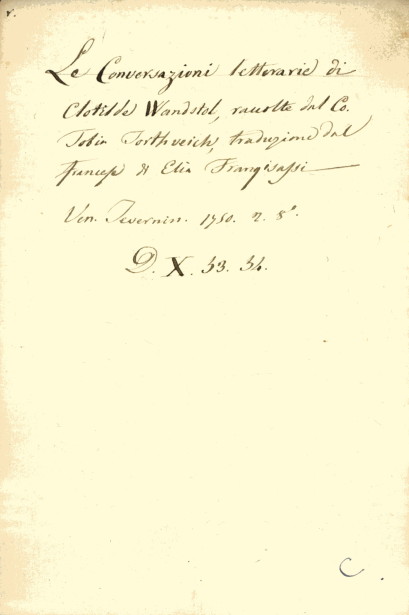 v.
Le Conversazioni letterarie di
Clotilde Wandstol, raccolte dal Co.
Tobia Torthveich, traduzione dal
francese di Elia Frangisassi
Ven. Tevernin. 1750. 2. 8°.
D. X. 53. 54.
C